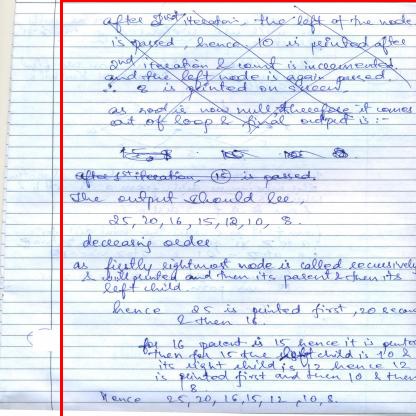 after 2nd iteration, the left of the node
is passed, hence 10 is printed after
2nd iteration & count is incremented.
and the left node is again passed.
∴ 8 is printed on screen.
as root is now null therefore it comes
out of loop & final output is :-
after 1st iteration, 15 is passed.
The output should be,
25, 20, 16, 15, 12, 10, 8.
decreasing order
as firstly rightmost node is called recursively
& printed and then its parent & then its
left child.
hence 25 is printed first, 20 second
& then 16.
for 16 parent is 15 hence it is printed
then for 15 the child is 10 &
its right child is 12 hence 12
is printed first and then 10 & then
8.
Hence 25, 20, 16, 15, 12, 10, 8.